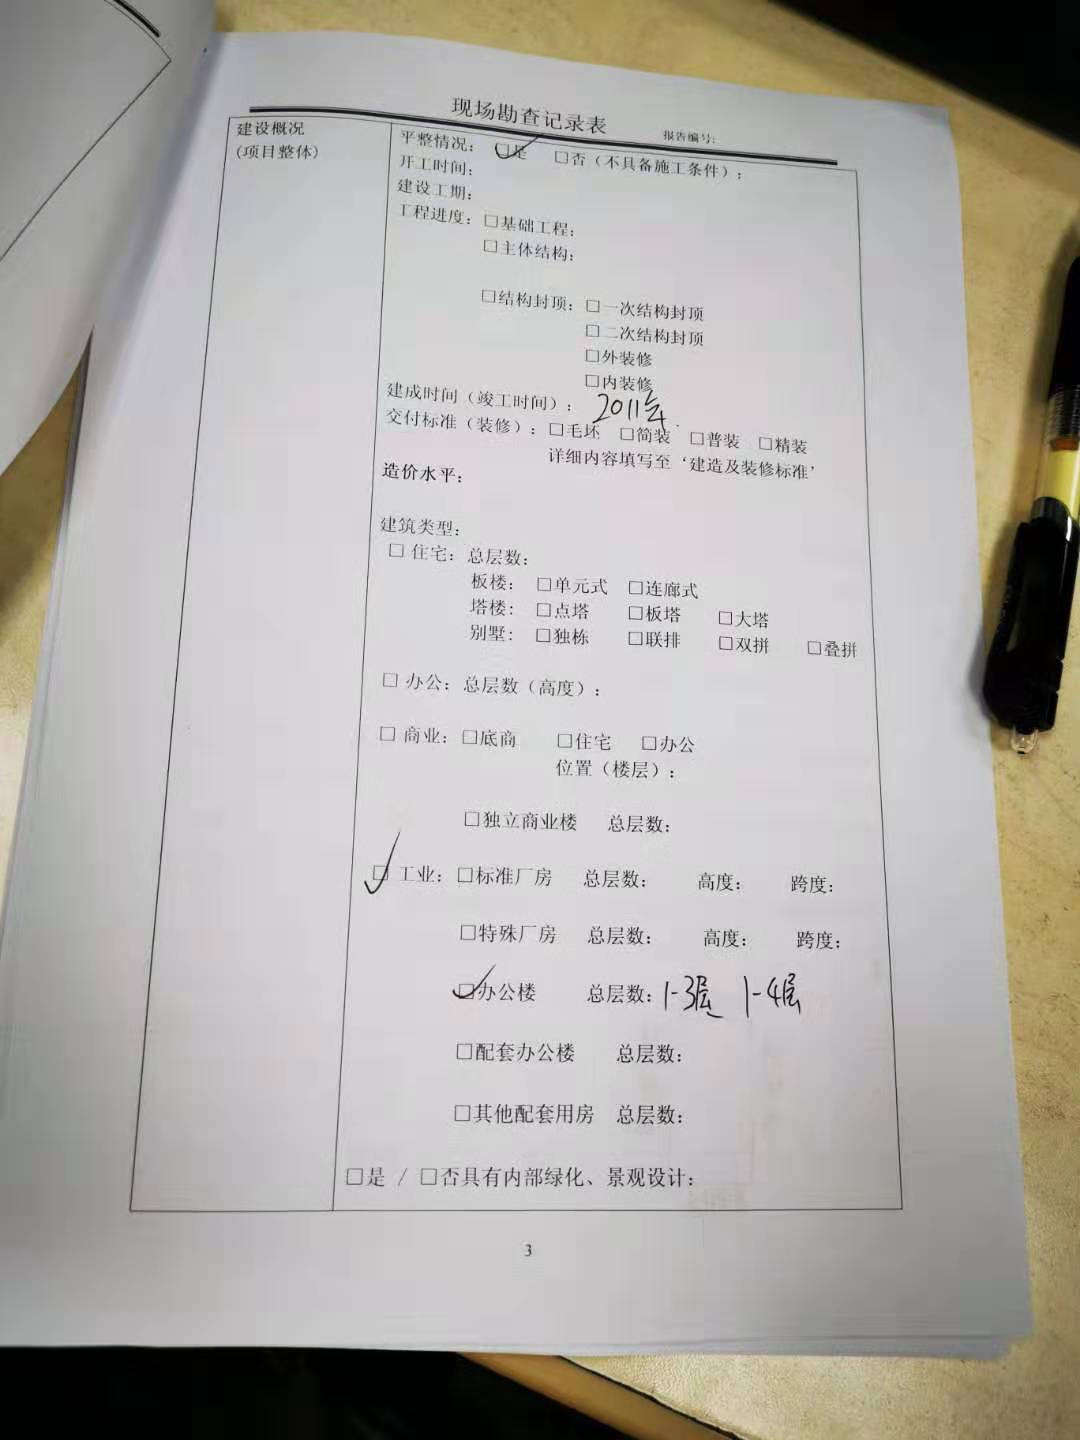 现场勘查记录表
报告编号:
建设概况
(项目整体)
平整情况: ☑是 □否(不具备施工条件):
开工时间:
建设工期:
工程进度: □基础工程:
□主体结构:
□结构封顶: □一次结构封顶
□二次结构封顶
□外装修
□内装修
建成时间(竣工时间): 2011年.
交付标准(装修): □毛坯 □简装 □普装 □精装
详细内容填写至‘建造及装修标准’
造价水平:
建筑类型:
□ 住宅: 总层数:
板楼: □单元式 □连廊式
塔楼: □点塔 □板塔 □大塔
别墅: □独栋 □联排 □双拼 □叠拼
□ 办公: 总层数(高度):
□ 商业: □底商 □住宅 □办公
位置(楼层):
□独立商业楼 总层数:
☑ 工业: □标准厂房 总层数: 高度: 跨度:
□特殊厂房 总层数: 高度: 跨度:
☑办公楼 总层数: 1-3层 1-4层
□配套办公楼 总层数:
□其他配套用房 总层数:
□是 / □否具有内部绿化、景观设计:
3